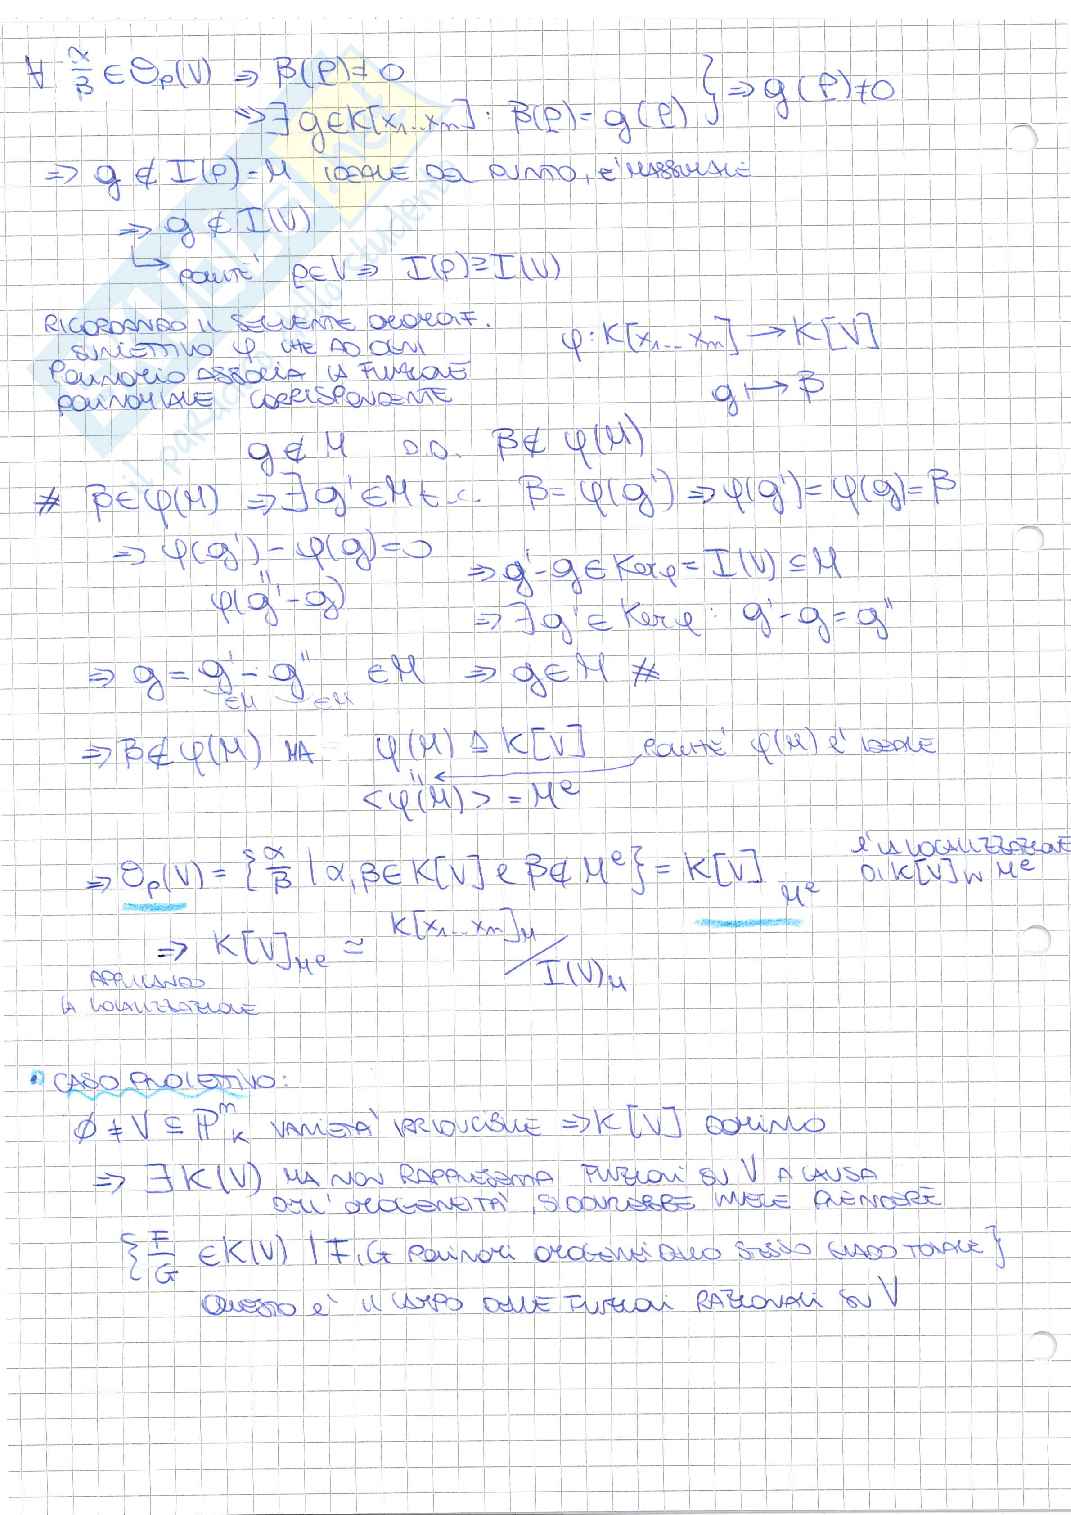 ∀ α/β ∈ O_P(V) ⇒ β(P) ≠ 0
⇒ ∃ g ∈ K[x₁...xₙ] : β(P) = g(P) } ⇒ g(P) ≠ 0
⇒ g ∉ I(P) = M IDEALE DEL PUNTO, E' MASSIMALE
⇒ g ∉ I(V)
↳ POICHE' P ∈ V ⇒ I(P) ⊇ I(V)
RICORDANDO IL SEGUENTE OMOMORF.
SURIETTIVO φ CHE AD OGNI
POLINOMIO ASSOCIA LA FUNZIONE
POLINOMIALE CORRISPONDENTE
φ : K[x₁...xₙ] → K[V]
g ↦ β
g ∉ M D.D. β ∉ φ(M)
# β ∈ φ(M) ⇒ ∃ g' ∈ M t.c. β = φ(g') ⇒ φ(g') = φ(g) = β
⇒ φ(g') - φ(g) = 0
"
φ(g' - g)
⇒ g' - g ∈ Kerφ = I(V) ⊆ M
⇒ ∃ g' ∈ Kerφ : g' - g = g''
⇒ g = g' - g'' ∈ M ⇒ g ∈ M #
∈M ∈M
⇒ β ∉ φ(M) MA φ(M) ⊴ K[V] POICHE' φ(M) E' IDEALE
"
<φ(M)> = Mᵉ
⇒ O_P(V) = { α/β | α, β ∈ K[V] e β ∉ Mᵉ } = K[V]_Mᵉ
E' LA LOCALIZZAZIONE
DI K[V] IN Mᵉ
⇒ K[V]_Mᵉ ≃ K[x₁...xₙ]_M / I(V)_M
APPLICANDO
LA LOCALIZZAZIONE
• CASO PROIETTIVO:
∅ ≠ V ⊆ ℙⁿ_K VARIETA' IRRIDUCIBILE ⇒ K[V] DOMINIO
⇒ ∃ K(V) MA NON RAPPRESENTA FUNZIONI SU V A CAUSA
DELL' OMOGENEITA', SI DOVREBBE INVECE PRENDERE
{ F/G ∈ K(V) | F, G POLINOMI OMOGENEI DELLO STESSO GRADO TOTALE }
QUESTO E' IL CAMPO DELLE FUNZIONI RAZIONALI SU V